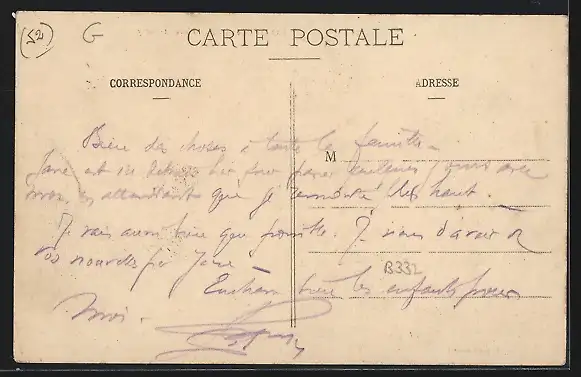 (52) G
CARTE POSTALE
CORRESPONDANCE
ADRESSE
Bien des choses à toute la famille -
Jane est ici depuis hier pour passer quelques jours avec
moi, en attendant que je remonte plus haut.
M
Je vais aussi bien que possible. Je viens d'avoir de
vos nouvelles par Jane
B332
Embrasse bien les enfants pour
moi.